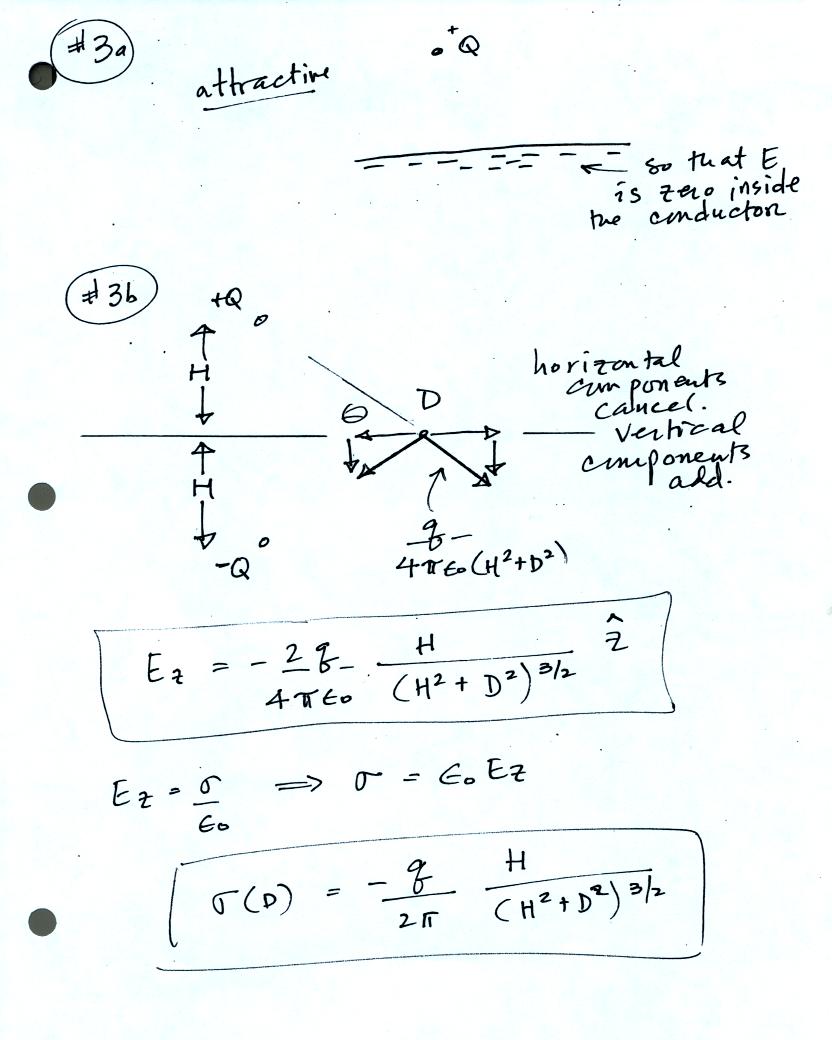 #3a
+Q
attractive
so that E
is zero inside
the conductor
#3b
+Q
H
H
-Q
θ
D
horizontal
components
cancel.
vertical
components
add.
q
4πϵ₀(H²+D²)
E_z = - 2q/4πϵ₀ H/(H² + D²)^3/2 ẑ
E_z = σ/ϵ₀ ⟹ σ = ϵ₀ E_z
σ(D) = - q/2π H/(H² + D²)^3/2